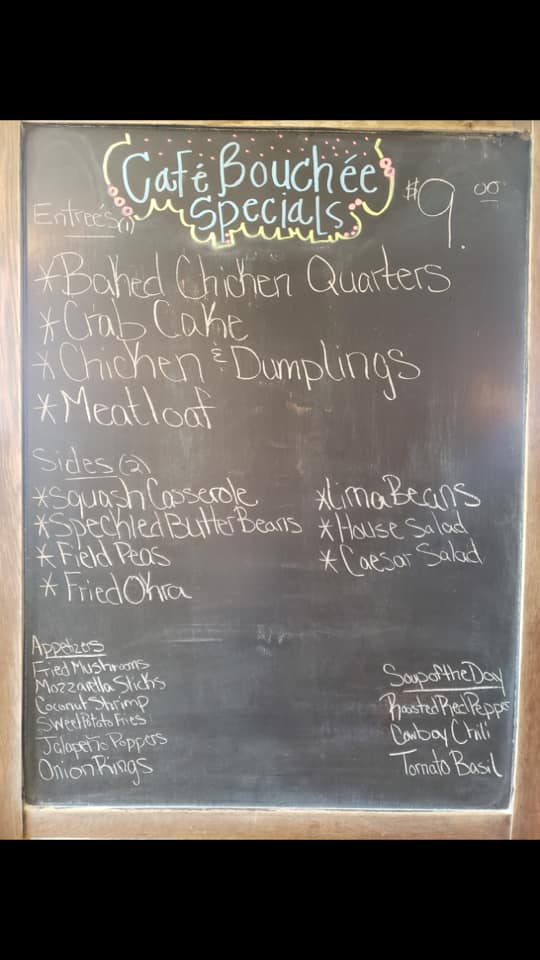 Café Bouchée
Specials
$9.00
Entreé's (1)
*Baked Chicken Quarters
*Crab Cake
*Chicken & Dumplings
*Meatloaf
Sides (2)
*Squash Casserole
*Speckled Butter Beans
*Field Peas
*Fried Okra
*Lima Beans
*House Salad
*Caesar Salad
Appetizers
Fried Mushrooms
Mozzarella Sticks
Coconut Shrimp
Sweet Potato Fries
Jalapeño Poppers
Onion Rings
Soup of the Day
Roasted Red Pepper
Cowboy Chili
Tomato Basil